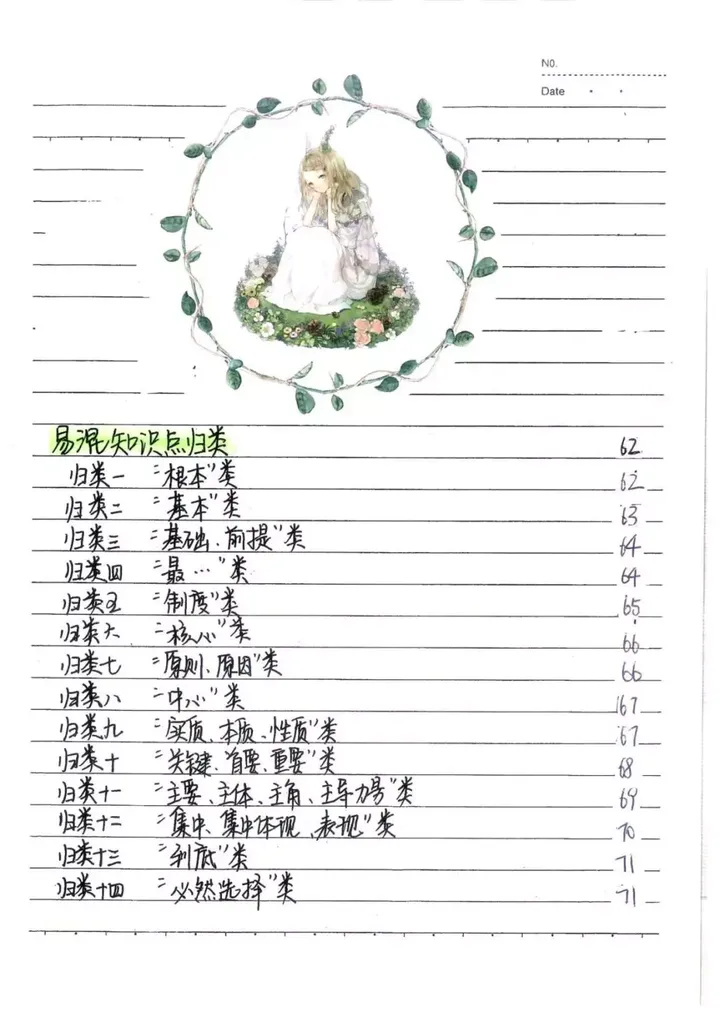 NO.
Date
易混知识点归类 62
归类一 "根本"类 62
归类二 "基本"类 63
归类三 "基础、前提"类 64
归类四 "最…"类 64
归类五 "制度"类 65
归类六 "核心"类 66
归类七 "原则、原因"类 66
归类八 "中心"类 67
归类九 "实质、本质、性质"类 67
归类十 "关键、首要、重要"类 68
归类十一 "主要、主体、主角、主导力量"类 69
归类十二 "集中、集中体现、表现"类 70
归类十三 "到底"类 71
归类十四 "必然选择"类 71